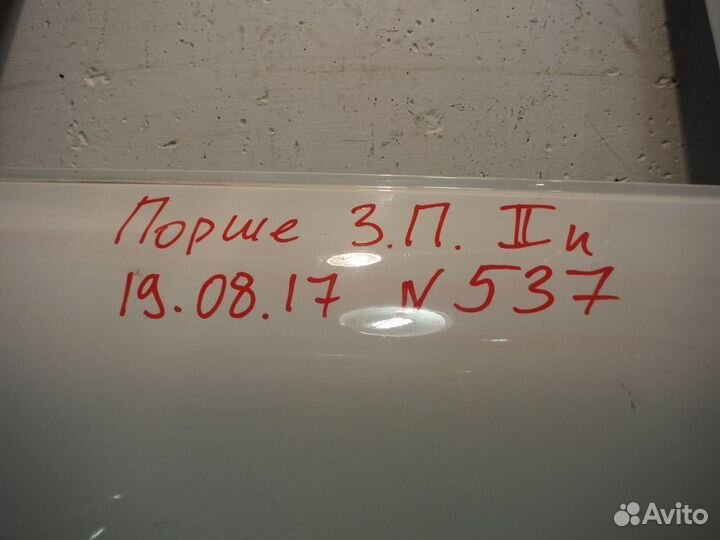 Порше З.П. II к
19.08.17 N 537
Avito